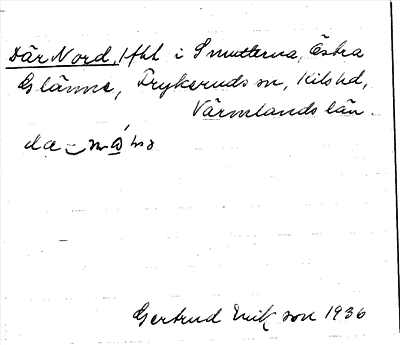 Där Nord, 1 fhl i Smutterna, Östra
Glänne, Frykeruds sn, Kils hd,
Värmlands län.
Gertrud Erikson 1936